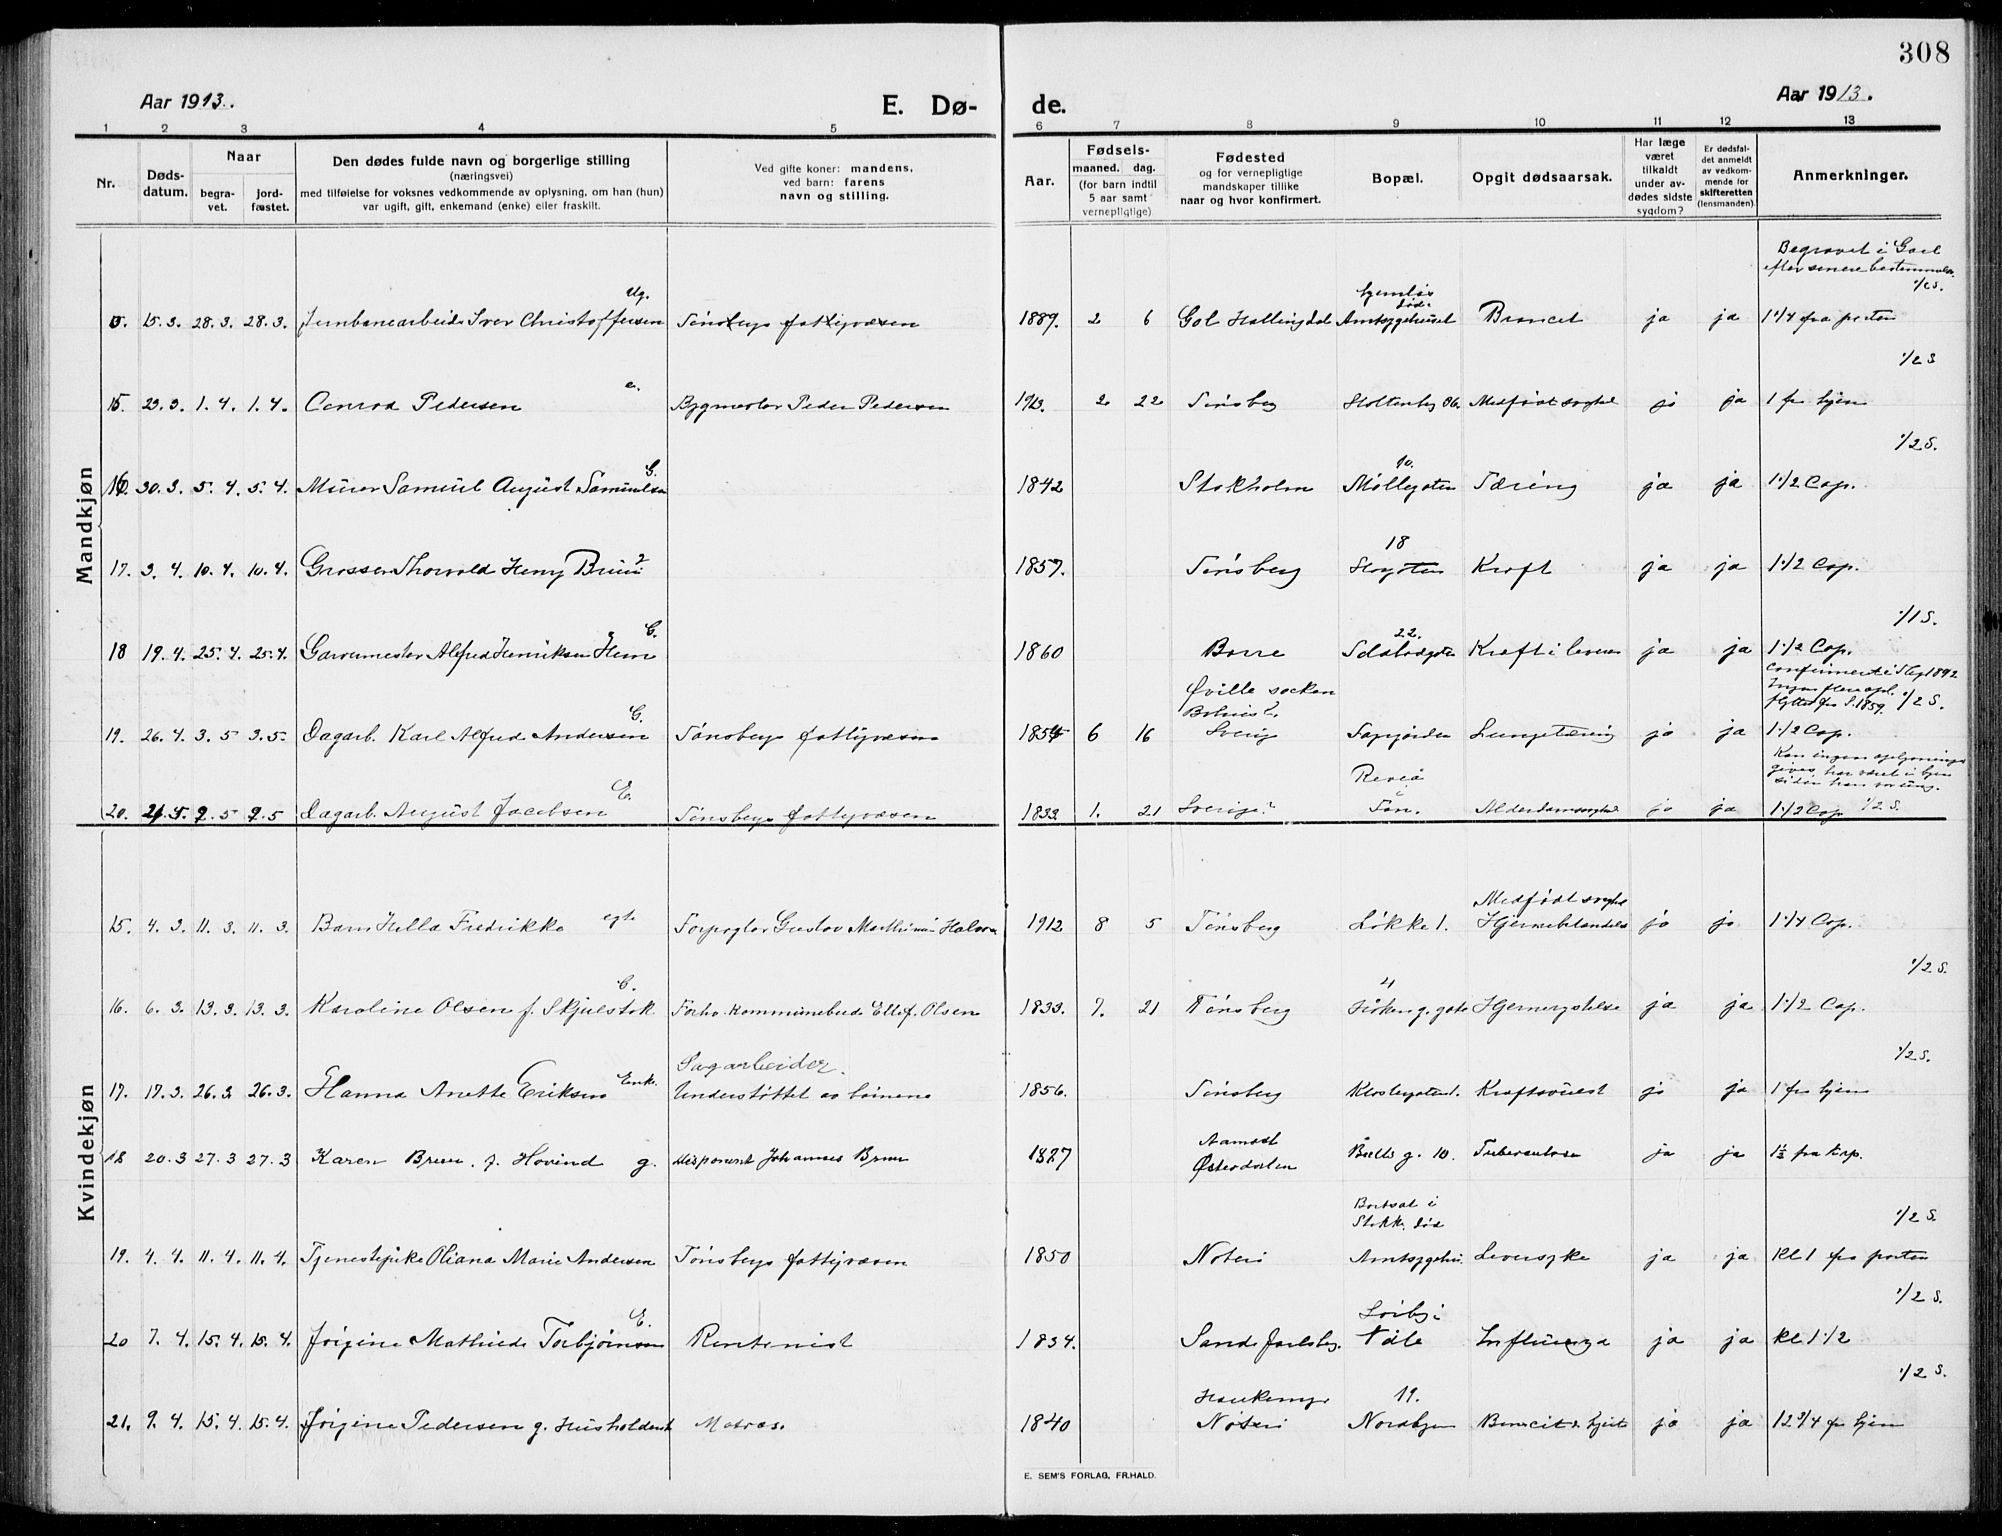 308
Aar 1913.
E. Dø-
de.
Aar 1913.
1 2 3 4 5 6 7 8 9 10 11 12 13
Nr.
Døds-
datum.
Naar
begra-
vet.
jord-
fæstet.
Den dødes fulde navn og borgerlige stilling
(næringsvei)
med tilføielse for voksnes vedkommende av oplysning, om han (hun)
var ugift, gift, enkemand (enke) eller fraskilt.
Ved gifte koner: mandens,
ved barn: farens
navn og stilling.
Aar.
Fødsels-
maaned. dag.
(for barn indtil
5 aar samt
vernepligtige)
Fødested
og for vernepligtige
mandskaper tillike
naar og hvor konfirmert.
Bopæl.
Opgit dødsaarsak.
Har læge
været
tilkaldt
under av-
dødes sidste
sygdom?
Er dødsfal-
det anmeldt
av vedkom-
mende for
skifteretten
(lensmanden).
Anmerkninger.
Mandkjøn
Begravet i Goel
efter senere bestemmelse
1/2 S.
Ug.
15.3. 28.3. 28.3. Jernbanearbeider Iver Christoffersen Tønsbergs fattigvæsen 1889. 2 6 Gol Hallingdal Amtsygehuset Broncit ja ja 1 1/4 fra porten
1/2 S
e.
15. 23.3. 1.4. 1.4. Conrad Pedersen Bygmester Peder Pedersen 1913. 2 22 Tønsberg Stoltenbg 36. Medfødt svaghed ja ja 1 fra hjem
1/2 S.
G. 10.
16. 30.3. 5.4. 5.4. Murer Samuel August Samuelsen 1842 Stokholm Møllegaten Tæring ja ja 1 1/2 Cap.
18
17. 3.4. 10.4. 10.4. Grosser Thorvald Henry Bruun 1857. Tønsberg Storgaten Kræft ja ja 1 1/2 Cap.
1/1 S.
G. 22.
18 19.4. 25.4. 25.4. Garvermester Alfred Henriksen Hem 1860 Borre Solstadgaten Kræft i leveren ja ja 1 1/2 Cap.
Øville socken
1/2 S.
G.
19. 26.4. 3.5 3.5. Dagarb. Karl Alfred Andersen Tønsbergs fattigvæsen 1854 6 16 Sverig Farjorden Lungetæring ja ja 1 1/2 Cap.
Kan ingen oplysninger
gives, har været i hjem
siden han var ung.
E.
20. 21.4. 2.5 2.5 Dagarb. August Jacobsen Tønsbergs fattigvæsen 1833 1. 21 Sverige? Tøn. Alderdomssvaghed ja ja 1 1/2 Cap 1/2 S.
Kvindekjøn
Medfødt svaghed
15. 4.3. 11.3. 11.3. Barn Hella Fredrikke egte Gustav Marthinius Halvorsen 1912 8 5 Tønsberg Løkke 1. Hjernebetændelse ja ja 1 1/4 Cap.
1/2 S.
G. 4
16. 6.3. 13.3. 13.3. Karoline Olsen f. Skjelstok Forhv. Kommunebud Ellef Olsen 1833. 7. 21 Tønsberg Hjernerystelse ja ja 1 1/2 Cap.
1/2 S.
Sagarbeider.
17. 17.3. 26.3 26.3. Hanna Anette Eriksen Enk. Understøttet av børnene 1856. Tønsberg Klostergaten 1. Kræftsvulst ja ja 1 fra hjem
Aamodt
18 20.3 27.3 27.3 Karen Bruun. f. Hovind g. Disponent Johannes Bruun 1887 Østerdalen Bulls g. 10. Tuberculose ja ja 1½ fra kap.
Bortsat i
Stokk. død
1/2 S.
19. 4.4. 11.4. 11.4. Tjenestepike Oliana Marie Andersen Tønsbergs fattigvæsen 1850 Nøterø Amtsygehus. Leversyke ja ja Kl 1 fra porten
1/2 S.
E.
20 7.4. 15.4. 15.4. Jørgine Mathilde Torbjørnsen Rentenist 1834. Sande Jarlsbg. Influenza ja ja Kl 1 1/2
1/2 S.
19.
21. 9.4. 15.4. 15.4. Jørgine Pedersen g. Husholderske Matros. 1840 Nøterø Nordbyen Broncit & hjerte ja ja 12 3/4 fra hjem
E. SEM'S FORLAG, FR.HALD.